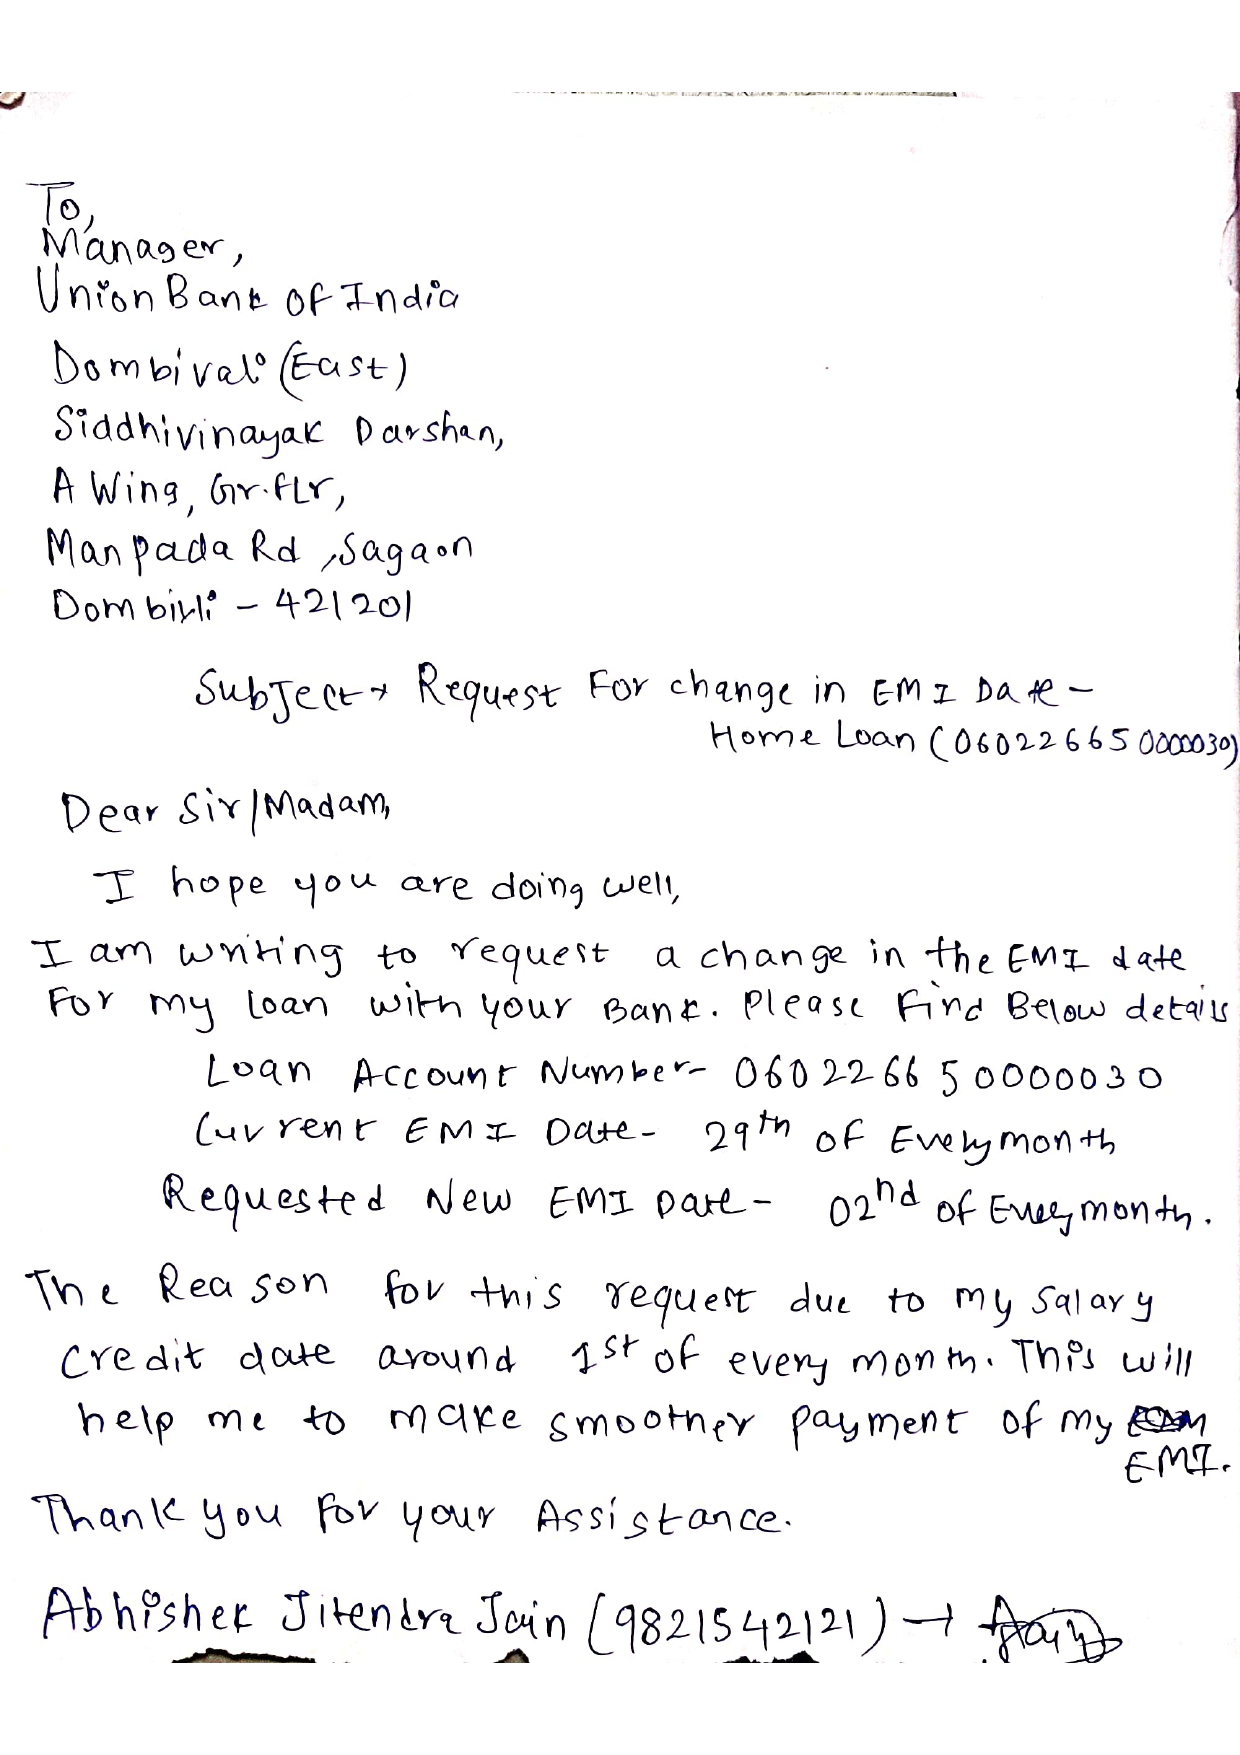 To,
Manager,
Union Bank of India
Dombivali (East)
Siddhivinayak Darshan,
A Wing, Gr.flr,
Manpada Rd, Sagaon
Dombivli - 421201
Subject → Request For change in EMI Date -
Home Loan (060226650000030)
Dear Sir/Madam,
I hope you are doing well,
I am writing to request a change in the EMI date
For my loan with your Bank. Please Find Below details
Loan Account Number - 060226650000030
Current EMI Date - 29th of Every month
Requested New EMI Date - 02nd of Every month.
The Reason for this request due to my salary
credit date around 1st of every month. This will
help me to make smoother payment of my
EMI.
Thank you For your Assistance.
Abhishek Jitendra Jain (9821542121) →